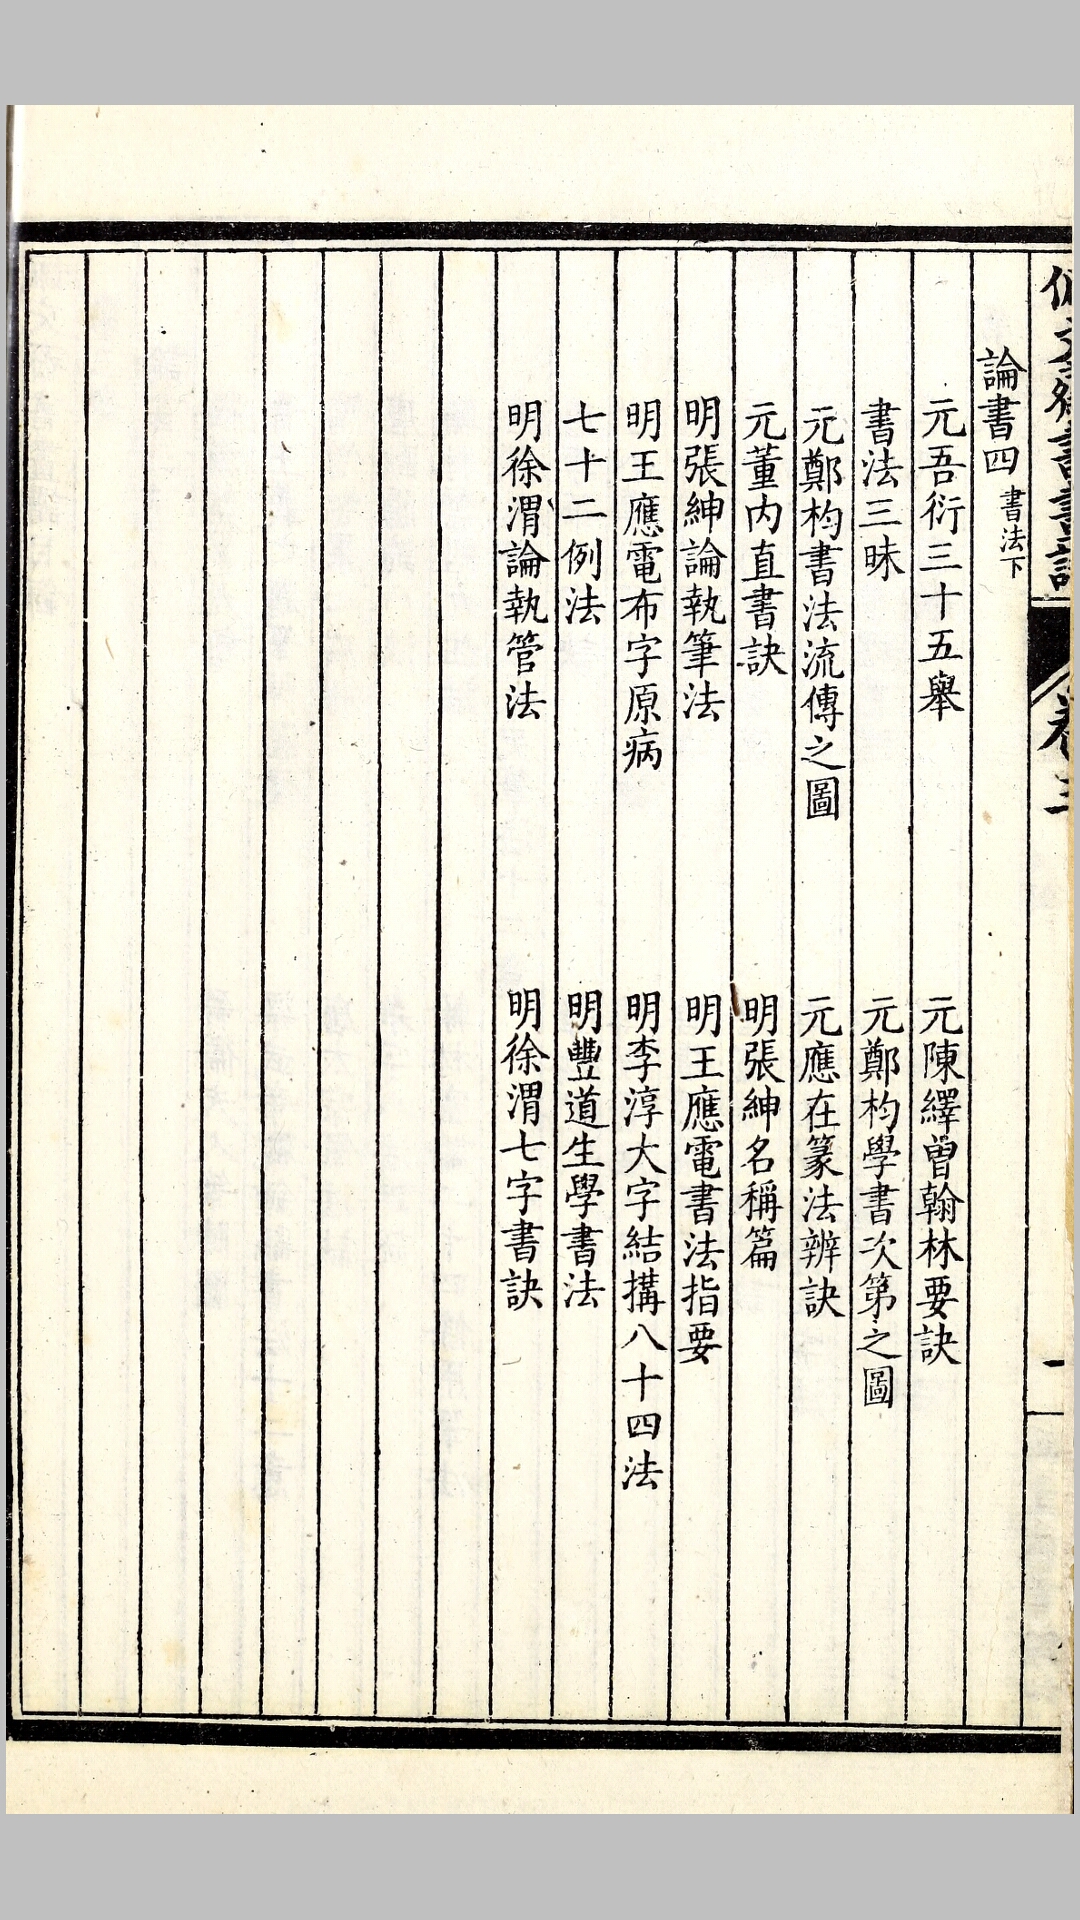 論書四 書法下
元吾衍三十五舉 元陳繹曾翰林要訣
書法三昧 元鄭杓學書次第之圖
元鄭杓書法流傳之圖 元應在篆法辨訣
元董内直書訣 明張紳名稱篇
明張紳論執筆法 明王應電書法指要
明王應電布字原病 明李淳大字結搆八十四法
七十二例法 明豐道生學書法
明徐渭論執管法 明徐渭七字書訣